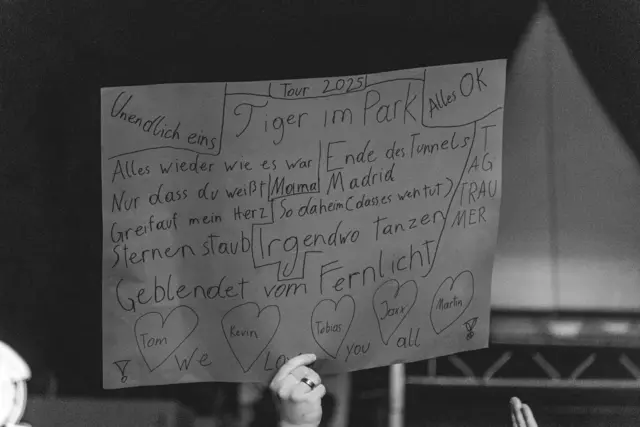 Tour 2025
Unendlich eins
Tiger im Park
Alles OK
Alles wieder wie es war
Ende des Tunnels
Nur dass du weißt
Mama
Madrid
TAGTRAUMER
Greif auf mein Herz
So daheim (dass es weh tut)
Sternenstaub
Irgendwo tanzen
Geblendet vom Fernlicht
Tom
Kevin
Tobias
Martin
We
you all